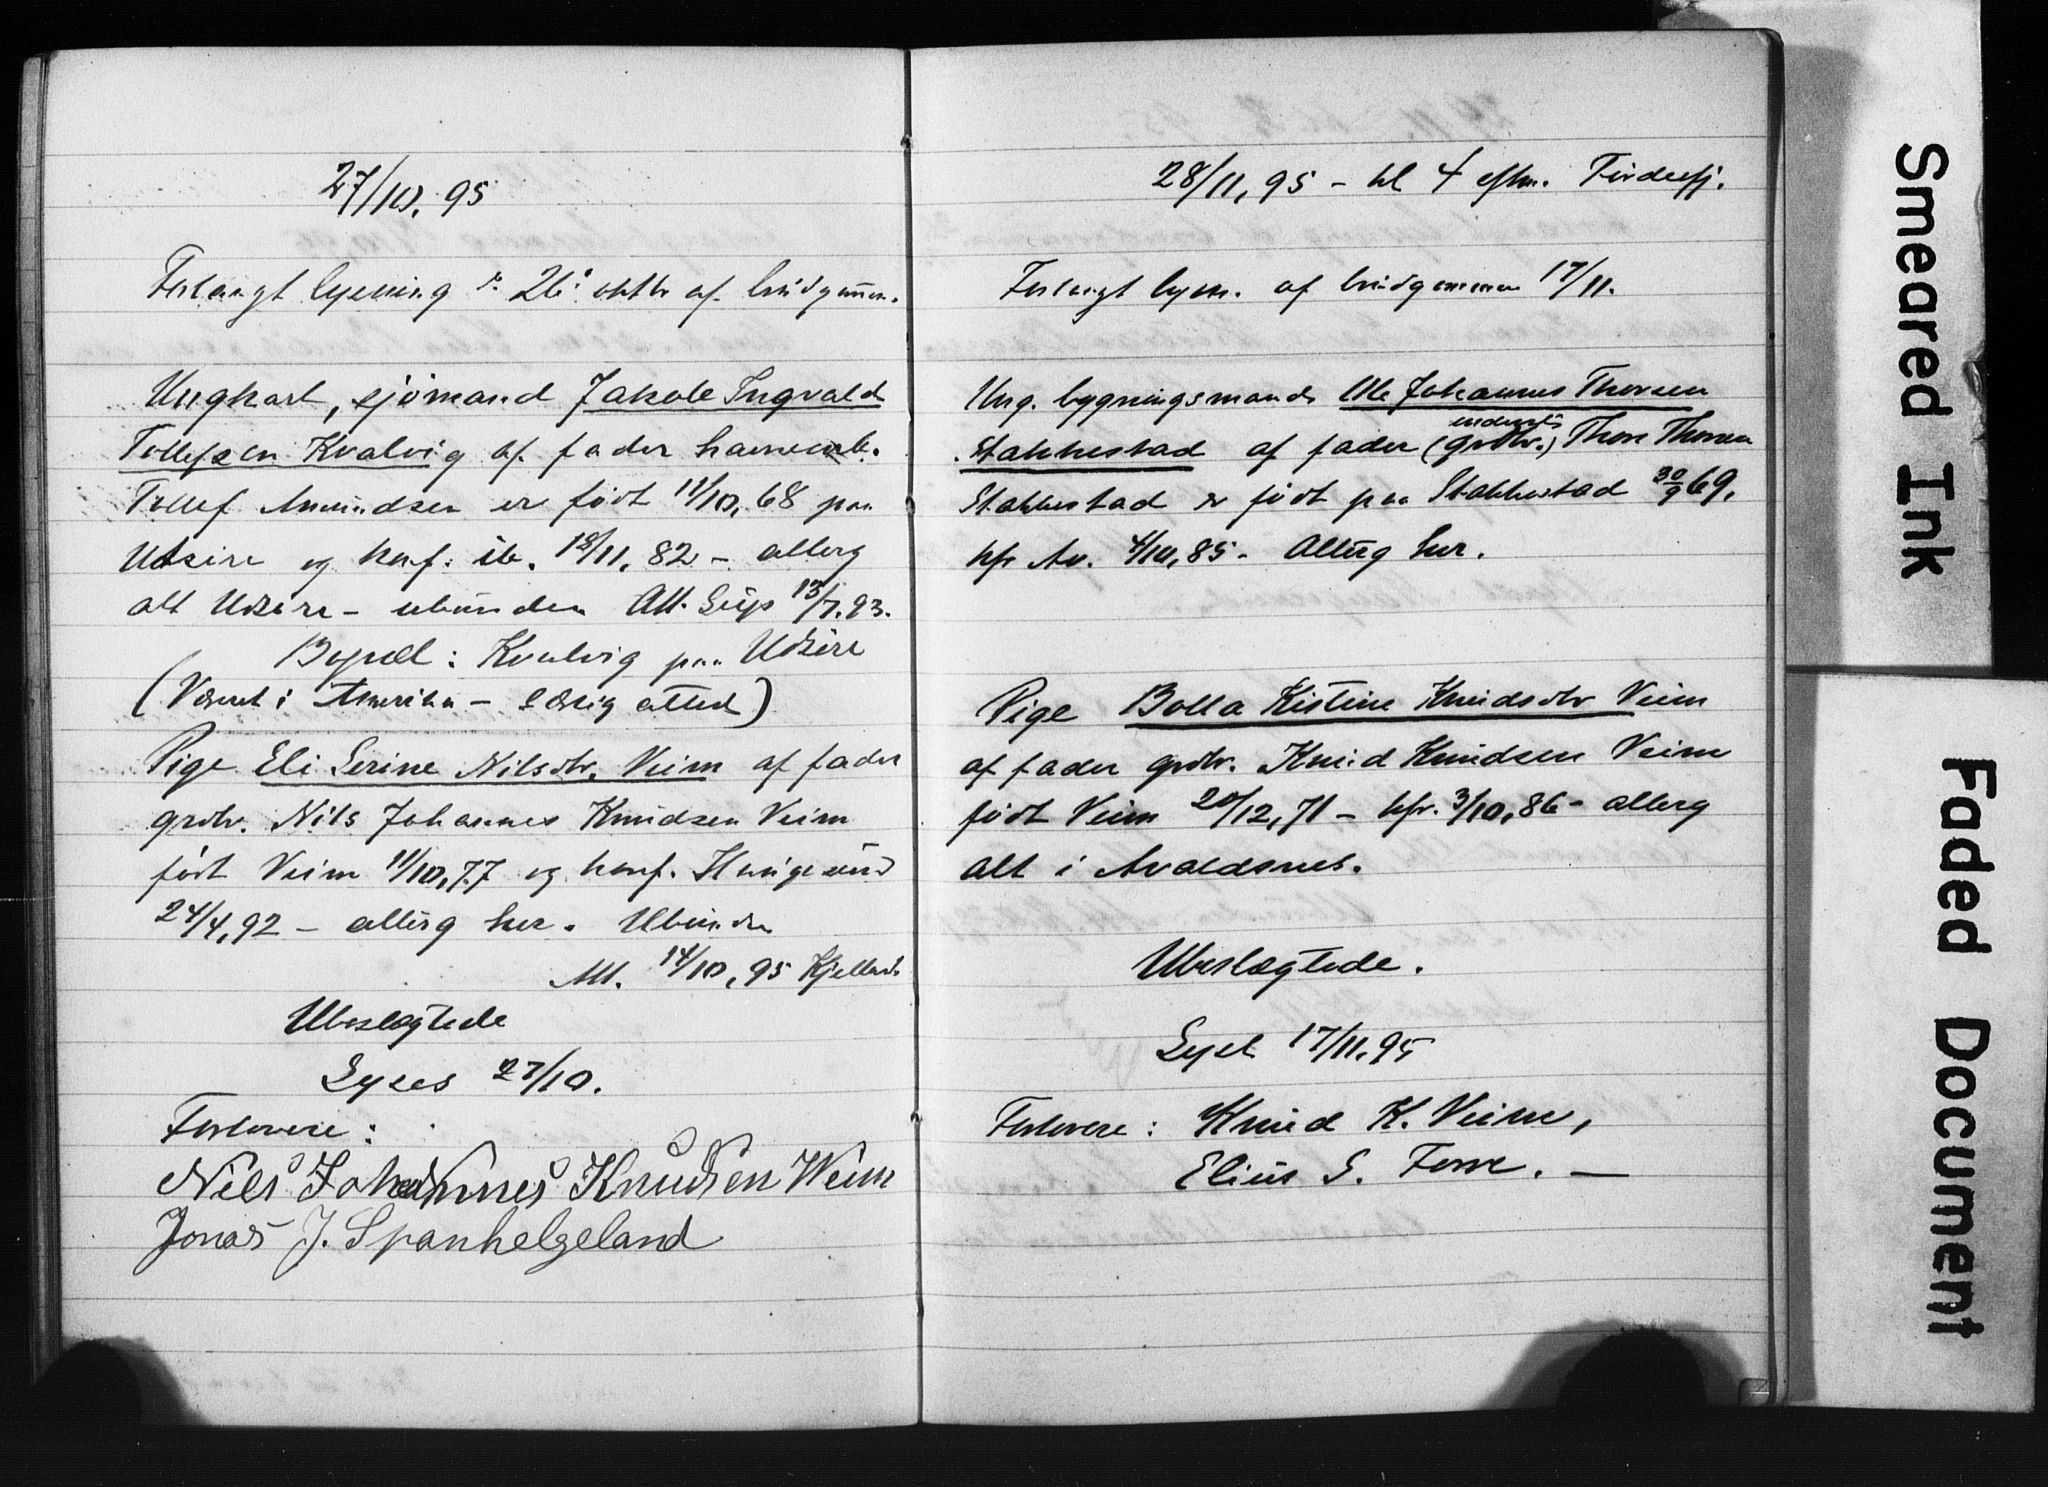 27/10. 95
Forlangt lysning d. 26' oktbr af brudgommen.
Ungkarl, sjömand Jakob Ingvald
Tollefsen Kvalvig af fader havnearb.
Tollef Amundsen er født 11/10, 68 paa
Utsire og konf. ib. 18/11, 82 – allerg
alt Utsire – ubunden Att. Seip 13/7.93.
Bopæl: Kvalvig paa Utsire
(Været i Amerika – attest)
Pige Eli Serine Nilsdtr. Veim af fader
grdbr. Nils Johannes Knudsen Veim
født Veim 11/10, 77 og konf. Haugesund
24/4, 92 – allerg her. Ubunden
Att. 14/10, 95 Kjelland
Ubeslægtede
Lyses 27/10.
Forlovere:
Niels Johannes Knudsen Weim
Jonas J. Spanhelgeland
28/11, 95 – kl 4 efm.
Forlangt lysn. af brudgommen 17/11.
Ung. bygningsmand Ole Johannes Thorsen
Stakkestad af fader (inderst grdbr.) Thore Thorsen
Stakkestad er født paa Stakkestad 30/9 69.
kfr Av. 4/10, 85 – Allerg her.
Pige Bolla Kistine Knudsdtr Veim
af fader grdbr. Knud Knudsen Veim
født Veim 20/12, 71 – kfr. 3/10, 86 – allerg
alt i Avaldsnes.
Ubeslægtede.
Lyst 17/11, 95
Forlovere: Knud K. Veim,
Elius S. Fosse. —
Smeared Ink
Faded Document